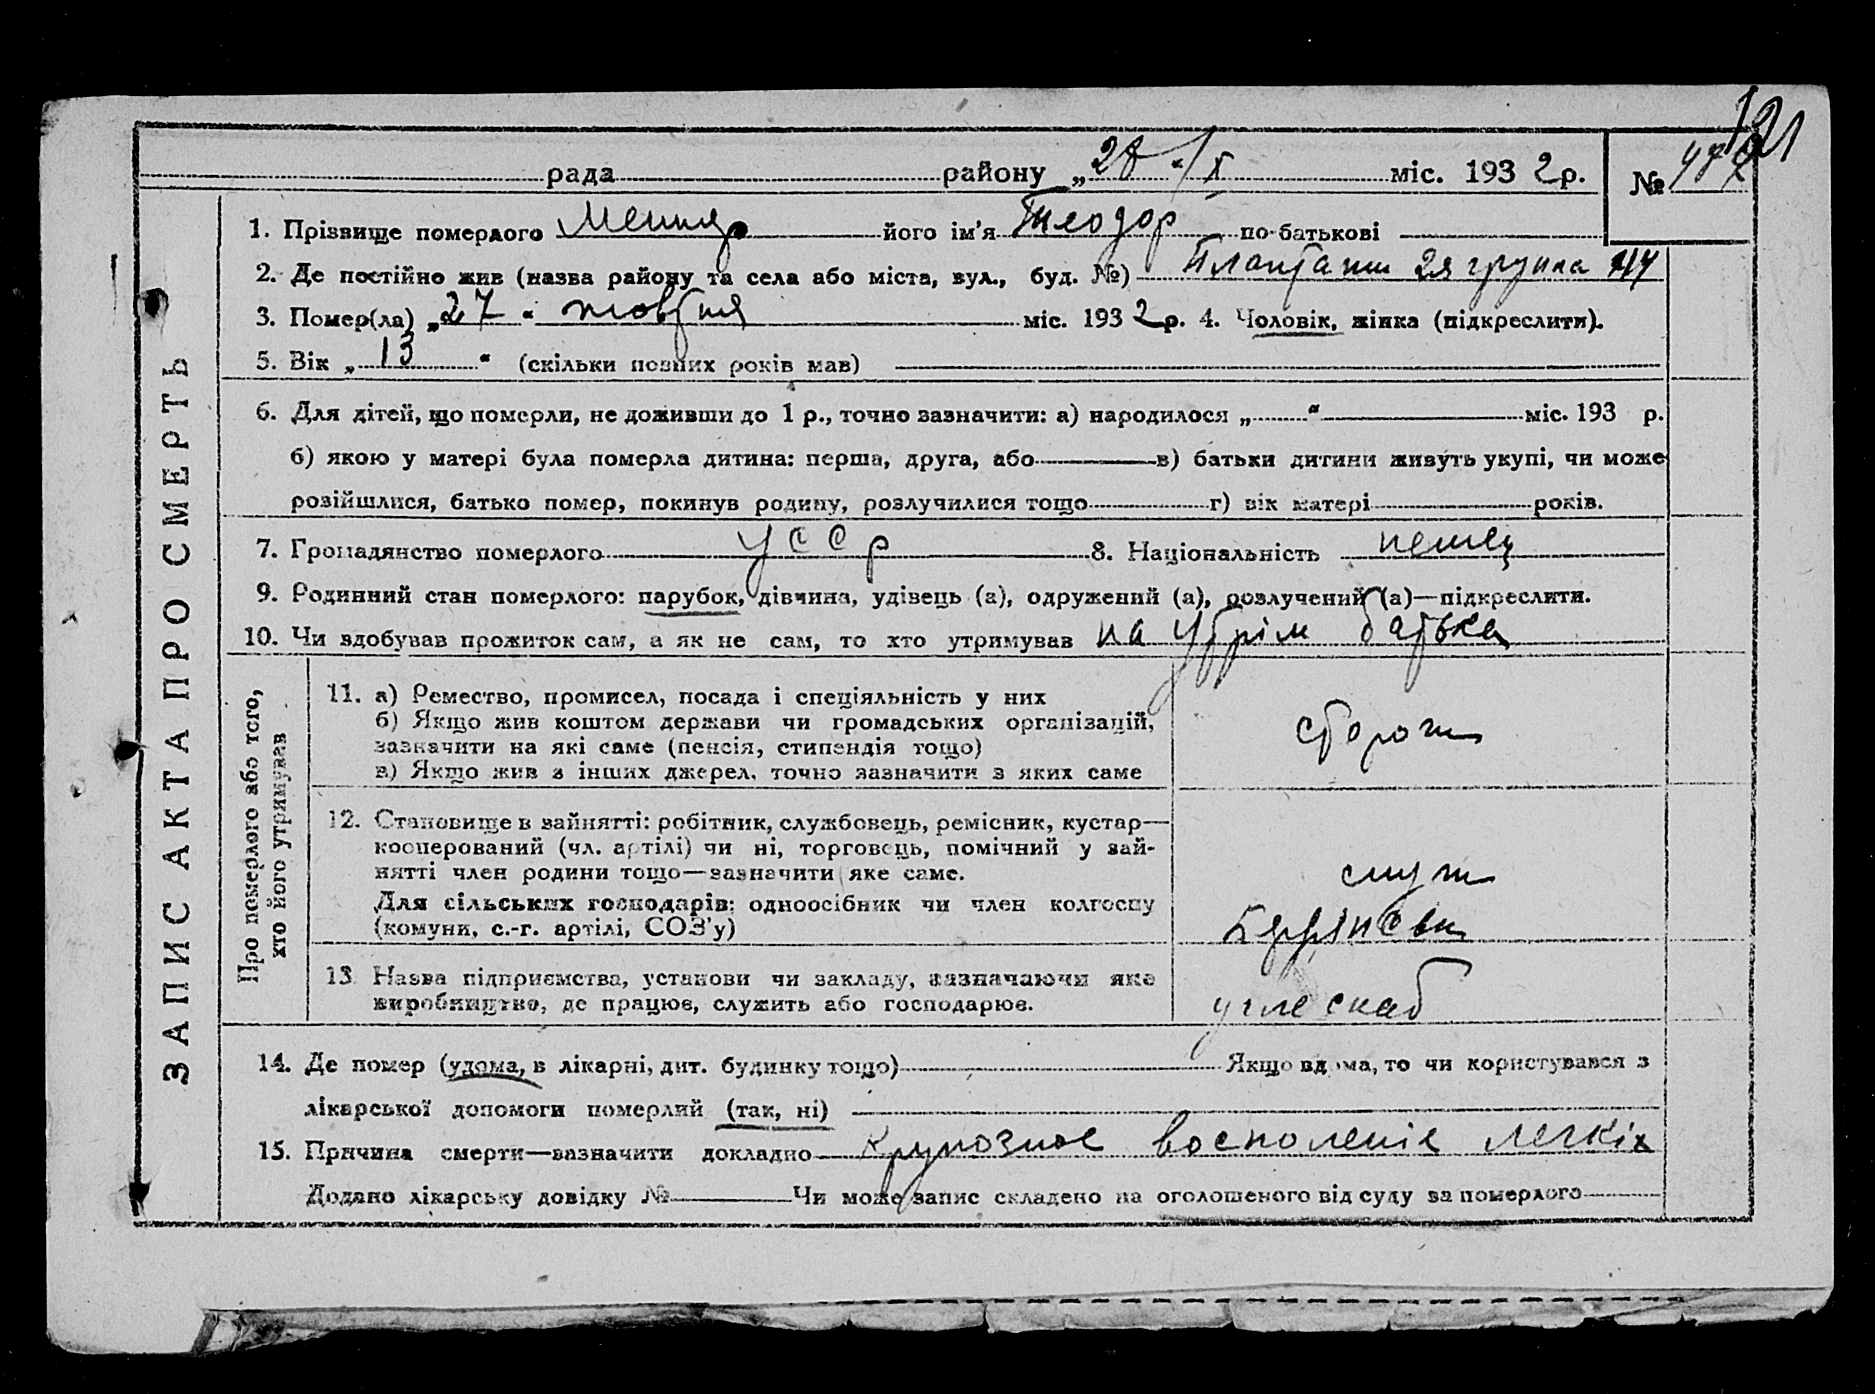 121
рада району „28“/X міс. 1932 р. №
1. Прізвище померлого його ім'я Теодор по-батькові
2. Де постійно жив (назва району та села або міста, вул., буд. №) 2я група
3. Помер(ла) „27“ жовтня міс. 1932 р. 4. Чоловік, жінка (підкреслити).
5. Вік „13“ (скільки повних років мав)
6. Для дітей, що померли, не доживши до 1 р., точно зазначити: а) народилося „ “ міс. 193 р.
б) якою у матері була померла дитина: перша, друга, або в) батьки дитини живуть укупі, чи може
розійшлися, батько помер, покинув родину, розлучилися тощо г) вік матері років.
7. Громадянство померлого УССР 8. Національність немец
9. Родинний стан померлого: парубок, дівчина, удівець (а), одружений (а), розлучений (а)—підкреслити.
10. Чи здобував прожиток сам, а як не сам, то хто утримував на утрім батька
ЗАПИС АКТА ПРО СМЕРТЬ
Про померлого або того,
хто його утримував
11. а) Ремество, промисел, посада і спеціяльність у них
б) Якщо жив коштом держави чи громадських організацій,
зазначити на які саме (пенсія, стипендія тощо)
в) Якщо жив з інших джерел, точно зазначити з яких саме
сторож
12. Становище в зайнятті: робітник, службовець, ремісник, кустар—
кооперований (чл. артілі) чи ні, торговець, помічний у зай-
нятті член родини тощо—зазначити яке саме.
Для сільських господарів: одноосібник чи член колгоспу
(комуни, с.-г. артілі, СОЗ'у)
служ
13. Назва підприємства, установи чи закладу, зазначаючи яке
виробництво, де працює, служить або господарює.
углеснаб
14. Де помер (удома, в лікарні, дит. будинку тощо) Якщо вдома, то чи користувався з
лікарської допомоги померлий (так, ні)
15. Причина смерти—вазначити докладно Крупозное восполеніе легкіх
Додано лікарську довідку № Чи може запис складено на оголошеного від суду за померлого